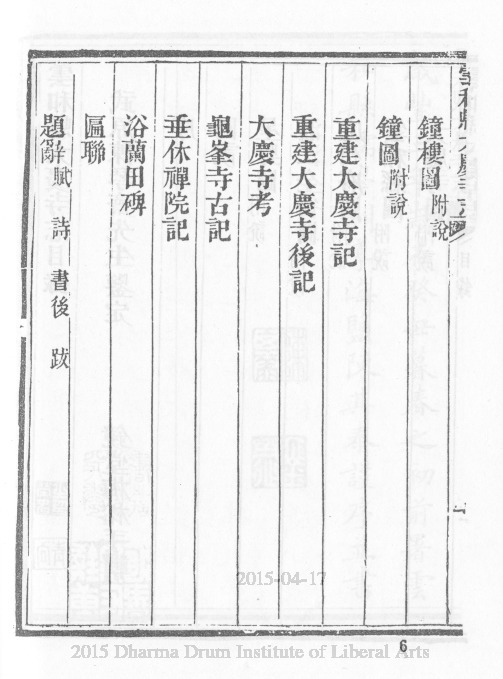 鐘樓圖 附說
鐘圖 附說
重建大慶寺記
重建大慶寺後記
大慶寺考
龜峯寺古記
垂休禪院記
浴蘭田碑
匾聯
題辭 賦 詩 書後 跋
2015-04-17
6
2015 Dharma Drum Institute of Liberal Arts